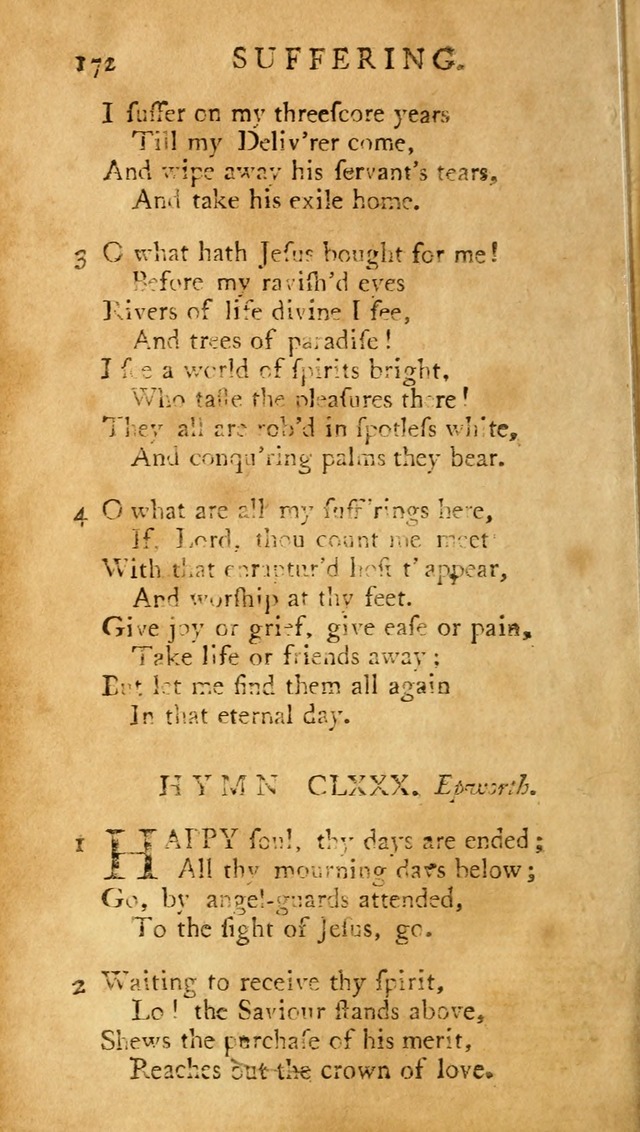 172 SUFFERING.
I ſuffer on my threeſcore years
Till my Deliv'rer come,
And wipe away his ſervant's tears,
And take his exile home.
3 O what hath Jeſus bought for me!
Before my raviſh'd eyes
Rivers of life divine I ſee,
And trees of paradiſe!
I ſee a world of ſpirits bright,
Who taſte the pleaſures there!
They all are rob'd in ſpotleſs white,
And conqu'ring palms they bear.
4 O what are all my ſuff'rings here,
If, Lord, thou count me meet
With that enraptur'd hoſt t'appear,
And worſhip at thy feet.
Give joy or grief, give eaſe or pain,
Take life or friends away;
But let me find them all again
In that eternal day.
HYMN CLXXX. Epworth.
1 HAPPY ſoul, thy days are ended;
All thy mourning days below;
Go, by angel-guards attended,
To the ſight of Jeſus, go.
2 Waiting to receive thy ſpirit,
Lo! the Saviour ſtands above,
Shews the purchaſe of his merit,
Reaches out the crown of love.